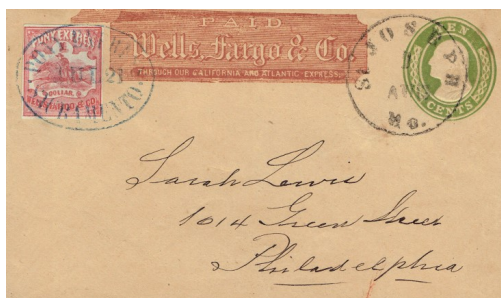 PAID
Wells, Fargo & Co.
THROUGH OUR CALIFORNIA AND ATLANTIC EXPRESS
PONY EXPRESS
DOLLAR
WELLS FARGO & CO.
ST JOSEPH
Mo.
TEN
CENTS
Sarah Lewis
1014 Green Street
Philadelphia